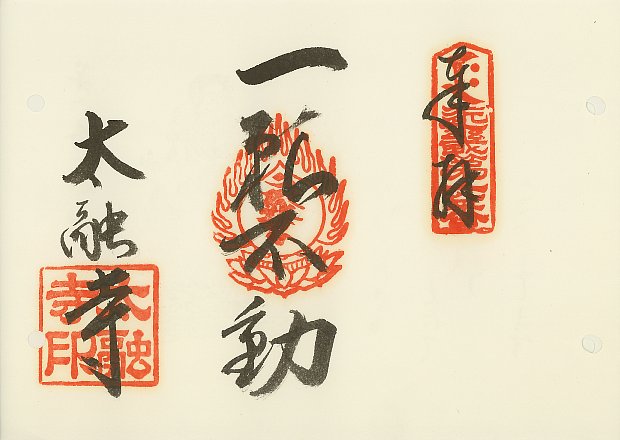 奉拝
一願不動
太融寺
太融寺印